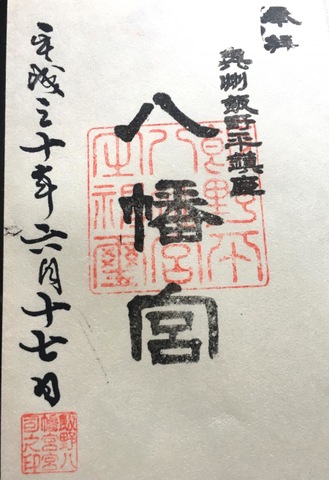 奉拝
奥州飯野平鎮座
飯野平
八幡宮
八幡宮
平成三十年六月十七日
飯野八
幡宮宮
司之印